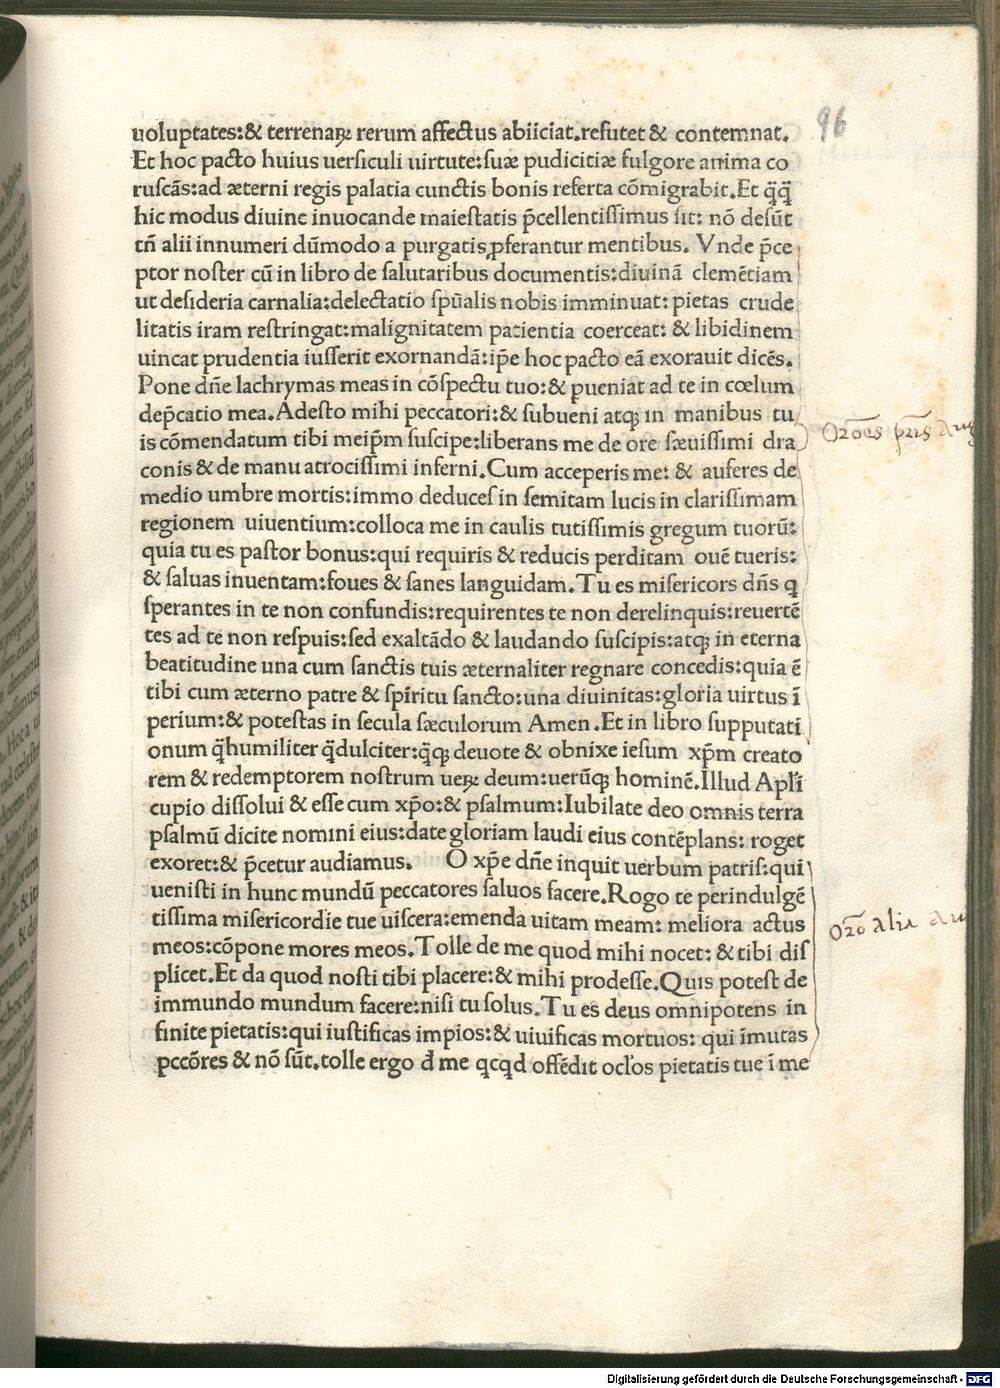 96
uoluptates:& terrenaꝝ rerum affectus abiiciat.refutet & contemnat.
Et hoc pacto huius uersiculi uirtute:suæ pudicitiæ fulgore anima co
ruscãs:ad æterni regis palatia cunctis bonis referta cõmigrabit.Et q̃q̃
hic modus diuine inuocande maiestatis p̃cellentissimus sit: nõ desũt
tñ alii innumeri dũmodo a purgatis ꝓferantur mentibus. Vnde p̃ce
ptor noster cũ in libro de salutaribus documentis:diuinã clemẽtiam
ut desideria carnalia:delectatio spũalis nobis imminuat: pietas crude
litatis iram restringat:malignitatem patientia coerceat: & libidinem
uincat prudentia iusserit exornandã:ip̃e hoc pacto eã exorauit dicẽs.
Pone dñe lachrymas meas in cõspectu tuo:& pueniat ad te in cœlum
dep̃catio mea.Adesto mihi peccatori:& subueni atqꝫ in manibus tu
is cõmendatum tibi meip̃m suscipe:liberans me de ore sæuissimi dra
conis & de manu atrocissimi inferni.Cum acceperis me: & auferes de
medio umbre mortis:immo deduces in semitam lucis in clarissimam
regionem uiuentium:colloca me in caulis tutissimis gregum tuorũ:
quia tu es pastor bonus:qui requiris & reducis perditam ouẽ tueris:
& saluas inuentam:foues & sanes languidam.Tu es misericors dñs q
sperantes in te non confundis:requirentes te non derelinquis:reuertẽ
tes ad te non respuis:sed exaltãdo & laudando suscipis:atqꝫ in eterna
beatitudine una cum sanctis tuis æternaliter regnare concedis:quia ẽ
tibi cum æterno patre & spiritu sancto:una diuinitas:gloria uirtus ĩ
perium:& potestas in secula sæculorum Amen.Et in libro supputati
onum q̃humiliter q̃dulciter:q̃qꝫ deuote & obnixe iesum xp̃m creato
rem & redemptorem nostrum ueꝝ deum:uerũqꝫ hominẽ.Illud Apl̃i
cupio dissolui & esse cum xp̃o:& psalmum:Iubilate deo omnis terra
psalmũ dicite nomini eius:date gloriam laudi eius contẽplans: roget
exoret:& p̃cetur audiamus. O xp̃e dñe inquit uerbum patris:qui
uenisti in hunc mundũ peccatores saluos facere.Rogo te perindulgẽ
tissima misericordie tue uiscera:emenda uitam meam: meliora actus
meos:cõpone mores meos.Tolle de me quod mihi nocet: & tibi dis
plicet.Et da quod nosti tibi placere:& mihi prodesse.Quis potest de
immundo mundum facere:nisi tu solus.Tu es deus omnipotens in
finite pietatis:qui iustificas impios:& uiuificas mortuos: qui ĩmutas
pccõres & nõ sũt.tolle ergo đ me qcqd offẽdit ocl̃os pietatis tue ĩ me
Orões
Orõ alia
Digitalisierung gefördert durch die Deutsche Forschungsgemeinschaft - DFG